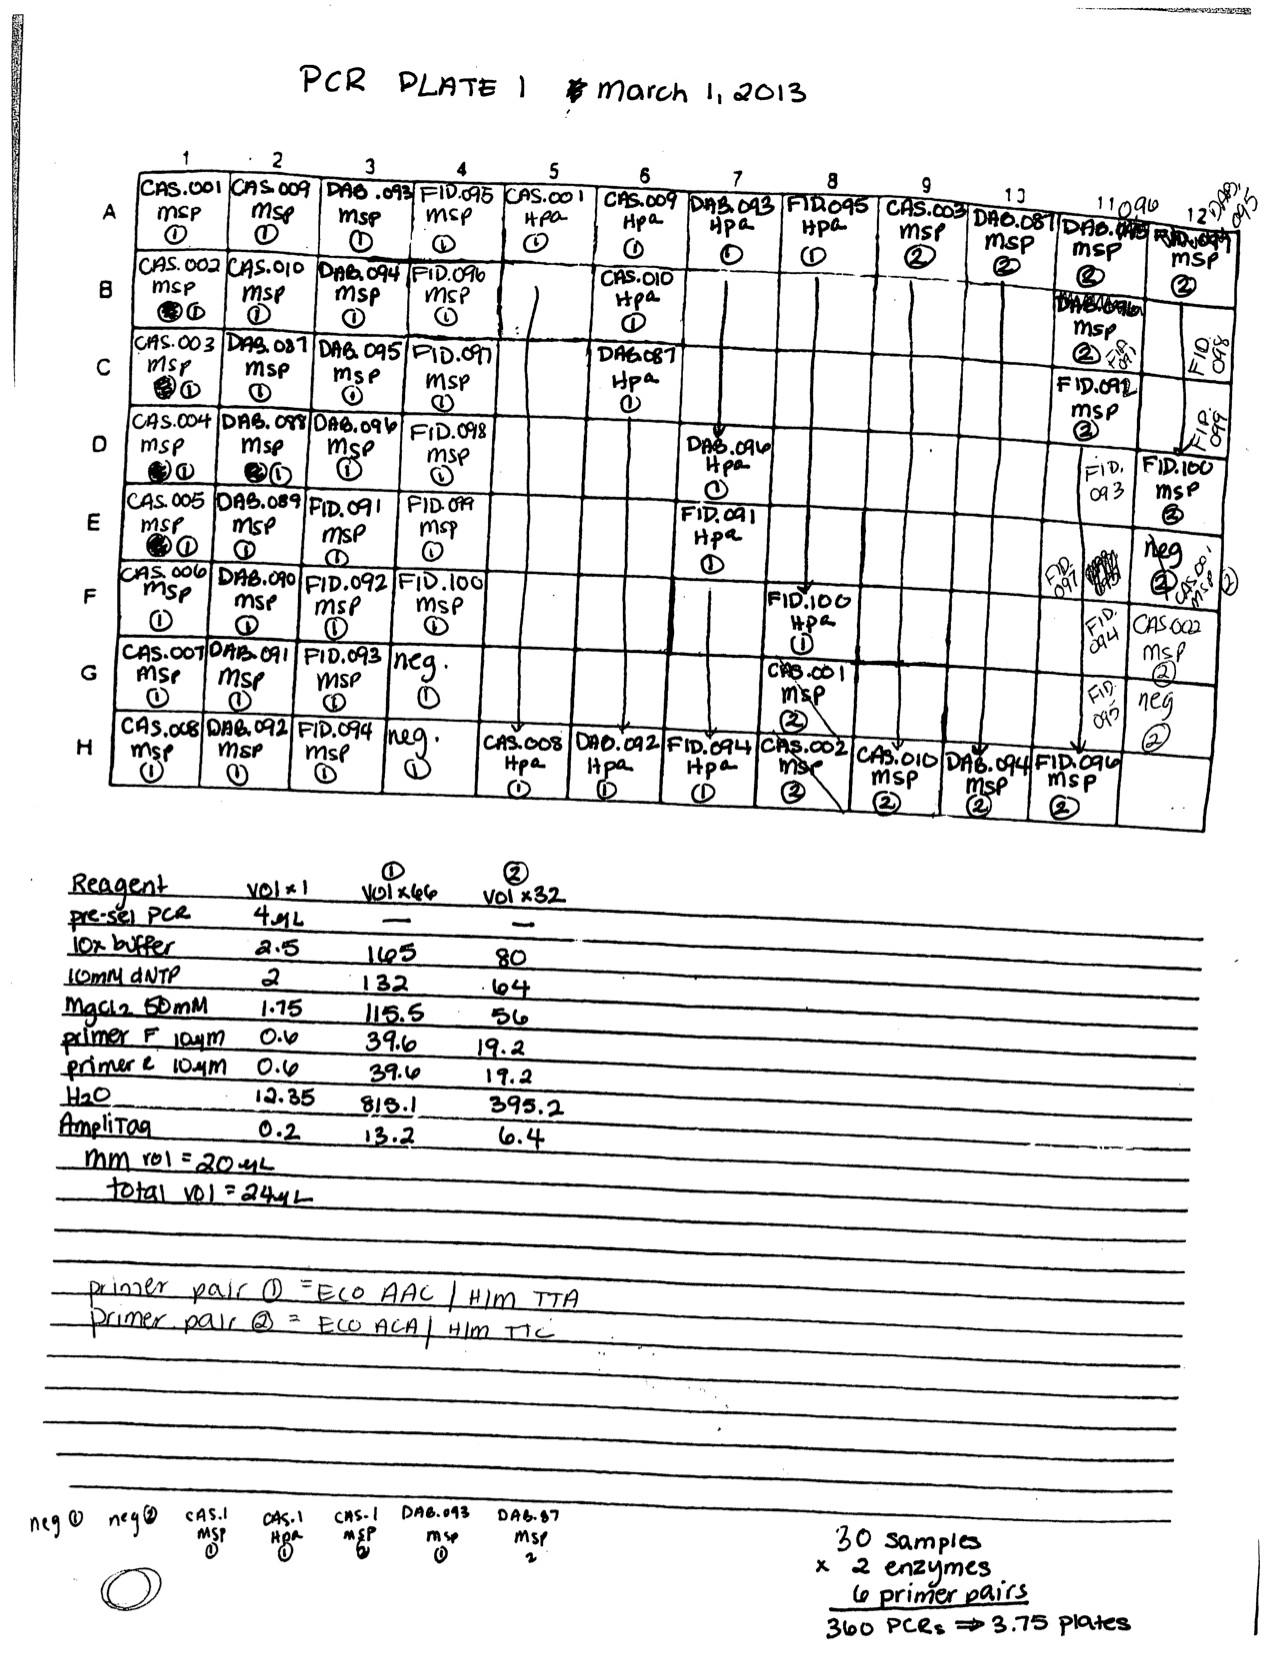 PCR PLATE 1 March 1, 2013
1 2 3 4 5 6 7 8 9 10 11 12
A CAS.001 CAS.009 DAB.093 FID.095 CAS.001 CAS.009 DAB.093 FID.095 CAS.003 DAB.087 DAB. 096 DAB. 095
msp msp msp msp Hpa Hpa Hpa Hpa msp msp msp msp
① ① ① ① ① ① ① ① ② ② ② ②
B CAS.002 CAS.010 DAB.094 FID.096 CAS.010
msp msp msp msp Hpa msp
① ① ① ① ① ② FID 091 FID 098
C CAS.003 DAB.087 DAB.095 FID.097 DAB.087 FID.092
msp msp msp msp Hpa msp
① ① ① ① ① ② FID. 099
D CAS.004 DAB.088 DAB.096 FID.098 DAB.096 FID. 093 FID.100
msp msp msp msp Hpa msp
① ① ① ① ① ②
E CAS.005 DAB.089 FID.091 FID.099 FID.091 neg
msp msp msp msp Hpa ② CAS.001 msp ②
① ① ① ① ① FID. 097
F CAS.006 DAB.090 FID.092 FID.100 FID.100 FID. 094 CAS.002
msp msp msp msp Hpa msp
① ① ① ① ① ②
G CAS.007 DAB.091 FID.093 neg. CAS.001 FID. 095 neg
msp msp msp ① msp ②
① ① ① ②
H CAS.008 DAB.092 FID.094 neg. CAS.008 DAB.092 FID.094 CAS.002 CAS.010 DAB.094 FID.096
msp msp msp ① Hpa Hpa Hpa msp msp msp msp
① ① ① ① ① ① ② ② ② ②
① ②
Reagent vol x 1 vol x 66 vol x 32
pre-sel PCR 4 µL — —
10x buffer 2.5 165 80
10mM dNTP 2 132 64
MgCl2 50mM 1.75 115.5 56
primer F 10µm 0.6 39.6 19.2
primer R 10µm 0.6 39.6 19.2
H2O 12.35 815.1 395.2
AmpliTaq 0.2 13.2 6.4
mm vol = 20 µL
total vol = 24 µL
primer pair ① = ECO AAC / HIM TTA
primer pair ② = ECO ACA / HIM TTC
neg ① neg ② CAS.1 CAS.1 CAS.1 DAB.093 DAB.87
msp Hpa msp msp msp
① ① ② ① 2
30 samples
x 2 enzymes
6 primer pairs
360 PCRs ⇒ 3.75 plates